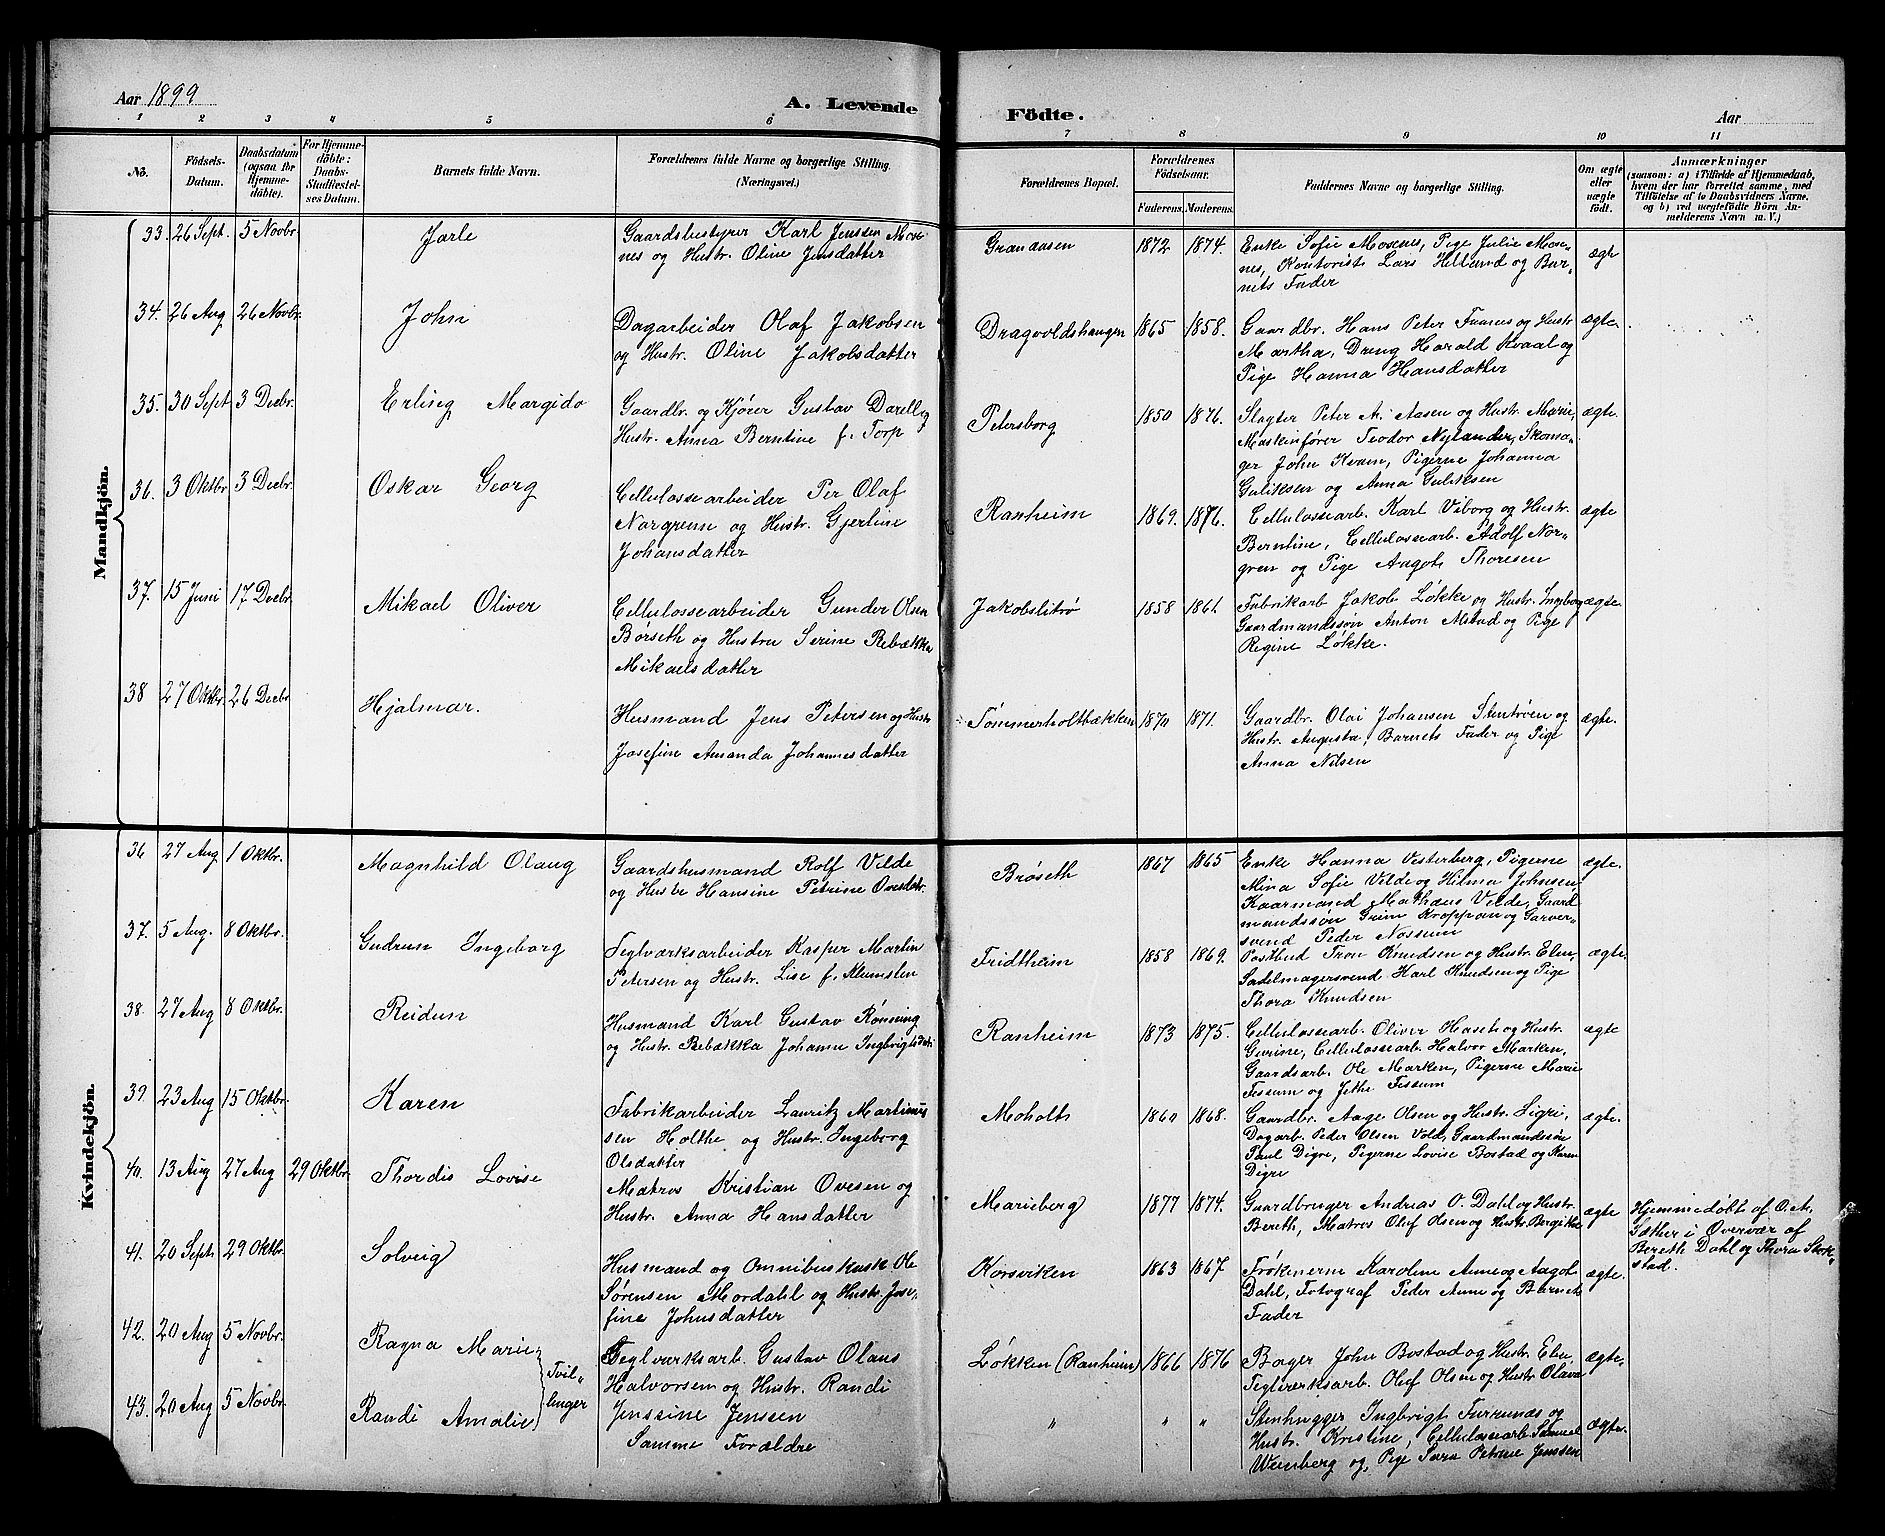 Aar 1899
A. Levende
Födte.
Aar
1 2 3 4 5 6 7 8 9 10 11
No.
Födsels-
Datum.
Daabsdatum
(ogsaa for
Hjemme-
döbte).
For Hjemme-
döbte:
Daabs-
Stadfæstel-
ses Datum.
Barnets fulde Navn.
Forældrenes fulde Navne og borgerlige Stilling.
(Næringsvei.)
Forældrenes Bopæl.
Forældrenes
Födselsaar.
Faderens. Moderens.
Faddernes Navne og borgerlige Stilling.
Om ægte
eller
uægte
födt.
Anmærkninger
(saasom: a) i Tilfælde af Hjemmedaab,
hvem der har forrettet samme, med
Tilföielse af to Daabsvidners Navne,
og b) ved uægtefödte Börn An-
melderens Navn m. V.)
Mandkjön.
33. 26 Sept. 5 Novbr. Jarle
Gaardsbestyrer Karl Jenssen Mose-
nes og Hustr. Oline Jensdatter
Granaasen 1872 1874.
Enke Sofie Mosenes, Pige Julie Mose-
nes, Kontorist Lars Hellund og Bar-
nets Fader
ægte
34. 26 Aug 26 Novbr. John
Dagarbeider Olaf Jakobsen
og Hustr. Oline Jakobsdatter
Dragvoldshaugen 1865 1858.
Gaardbr. Hans Peter Fuanes og Hustr
Martha, Dreng Harald Kvaal og
Pige Hanna Hansdatter
ægte.
35. 30 Sept 3 Decbr. Erling Margido
Gaardbr. og Kjører Gustav Darell og
Hustr. Anna Berntine f. Torp
Petersborg 1850 1876.
Slagter Peter A. Aasen og Hustr. Marie,
Maskinfører Teodor Nylander, Skoma-
ger John Kvam, Pigerne Johanna
Guliksen og Anna Guliksen
ægte.
36. 3 Oktbr 3 Decbr. Oskar Georg
Cellulossearbeider Per Olaf
Norgrenn og Hustr. Gjertine
Johansdatter
Ranheim 1869. 1876.
Cellulossearb. Karl Viborg og Hustr.
Berntine, Cellulossearb. Adolf Nor-
gren og Pige Aagot Thoresen
ægte
37. 15 Juni 17 Decbr. Mikael Oliver
Cellulossearbeider Gunder Olsen
Børseth og Hustru Serine Rebækka
Mikaelsdatter
Jakobslitrø 1858 1861.
Fabrikarb Jakob Løkke og Hustr. Ingeborg
Gaardmandssøn Anton Mstad og Pige
Regine Løkke.
ægte.
38 27 Oktbr. 26 Decbr Hjalmar.
Husmand Jens Petersen og Hustr
Josefine Amanda Johannesdatter
Tømmerholtbækken 1870 1871.
Gaardbr. Olai Johansen Stentrøen og
Hustr. Augusta, Barnets Fader og Pige
Anna Nilsen
ægte.
Kvindekjön.
36 27 Aug 1 Oktbr. Magnhild Olaug
Gaardshusmand Rolf Velde
og Hustr Hansine Petrine Ovesdatr.
Brøseth 1867 1865
Enke Hanna Vesterberg, Pigerne
Mina Sofie Velde og Hilma Johnsen,
Kaarmand Mathæus Velde, Gaard-
mandssøn Grim Kroppan og Garver-
svend Peder Nossum
ægte.
37. 5 Aug. 8 Oktbr. Gudrun Ingeborg
Teglværksarbeider Kasper Martin
Petersen og Hustr. Lise f. Klumslen
Fridtheim 1858 1869.
Postbud Tron Knudsen og Hustr. Elen,
Sadelmagersvend Karl Knudsen og Pige
Thora Knudsen
ægte.
38. 27 Aug 8 Oktbr Reidun
Husmand Karl Gustav Rønning
og Hustr. Rebækka Johanne Ingbrigtsdatr
Ranheim 1873 1875.
Cellulossearb. Oliver Haseth og Hustr.
Gurine, Cellulossearb. Halvor Marken,
Gaardsarb. Ole Marken, Pigerne Marie
Tessum og Jethe Tessum
ægte
39. 23 Aug 15 Oktbr. Karen
Fabrikarbeider Lauritz Martinus-
sen Holthe og Hustr. Ingeborg
Olsdatter
Moholt 1860 1868.
Gaardbr. Aage Olsen og Hustr. Sigri,
Dagarb. Peder Olsen Vold, Gaardmandssøn
Paul Digre, Pigerne Lovise Bostad og Karen
Digre
ægte.
40. 13 Aug 27 Aug 29 Oktbr. Thordis Lovise
Matros Kristian Ovesen og
Hustr. Anna Hansdatter
Marieberg 1877 1874.
Gaardbruger Andreas O. Dahl og Hustr.
Bereth, Matros Oluf Olsen og Hustr. Bergitha
ægte
Hjemmedøbt af O. A.
Sæther i Overvær af
Bereth Dahl og Thora Stok-
stad.
41. 20 Sept. 29 Oktbr. Solveig
Husmand og Omnibuskusk Ole
Sørensen Mordahl og Hustr. Jose-
fine Johnsdatter
Korsviken 1863 1867.
Frøknerne Karoline Anne og Aagot
Dahl, Fotograf Peder Aune og Barnets
Fader
ægte.
42. 20 Aug 5 Novbr. Ragna Marie
Tvil-
linger
Teglværksarb. Gustav Olaus
Halvorsen og Hustr. Randi
Jenssine Jenssen
Løkken (Ranheim) 1866 1876
Bager John Bostad og Hustr. Elen,
Teglverksarb. Oluf Olsen og Hustr Olava
ægte.
43. 20 Aug 5 Novbr. Randi Amalie
Samme Forældre
" " "
Stenhugger Ingbrigt Furunæs og
Hustr. Kristine, Cellulossearb. Samuel
Wenberg og Pige Sara Petrine Jenssen
ægte.